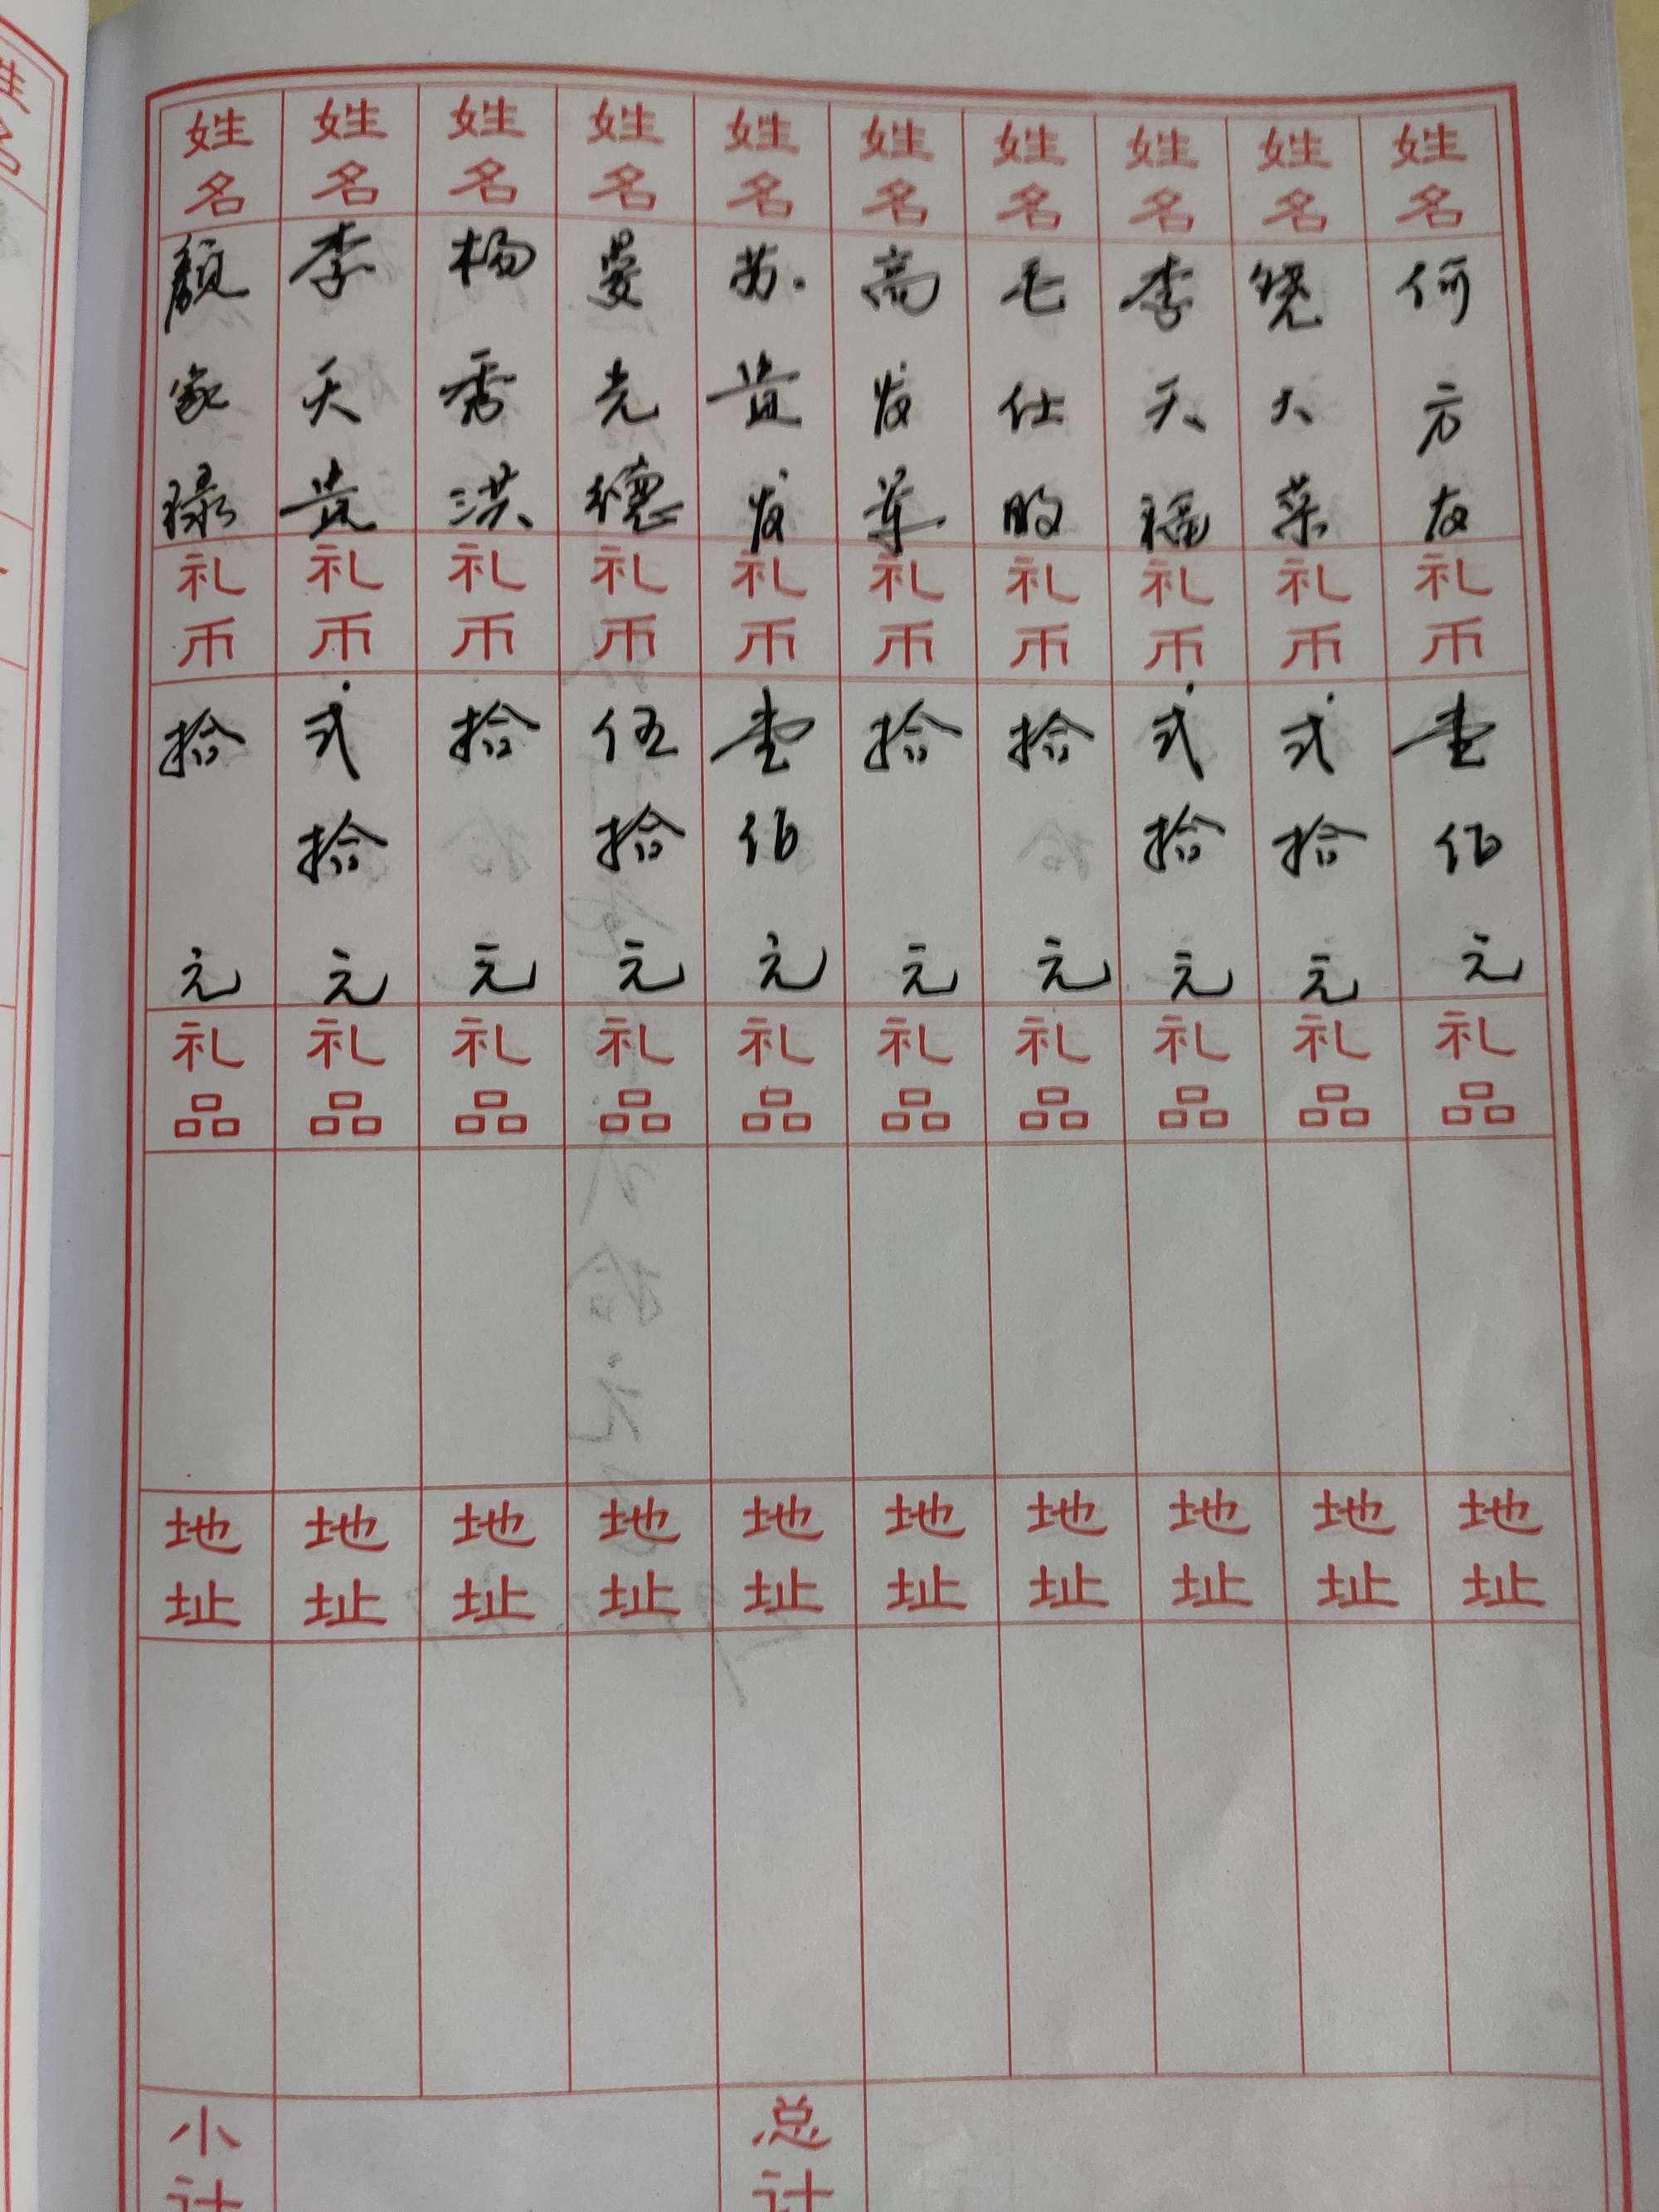 姓名 何方友 礼币 壹佰元 礼品 地址
姓名 饶大荣 礼币 弍拾元 礼品 地址
姓名 李天福 礼币 弍拾元 礼品 地址
姓名 毛仕 礼币 拾元 礼品 地址
姓名 高发 礼币 拾元 礼品 地址
姓名 苏贵发 礼币 壹佰元 礼品 地址
姓名 晏光德 礼币 伍拾元 礼品 地址
姓名 杨秀洪 礼币 拾元 礼品 地址
姓名 李天贵 礼币 弍拾元 礼品 地址
姓名 颜家禄 礼币 拾元 礼品 地址
总计
小计